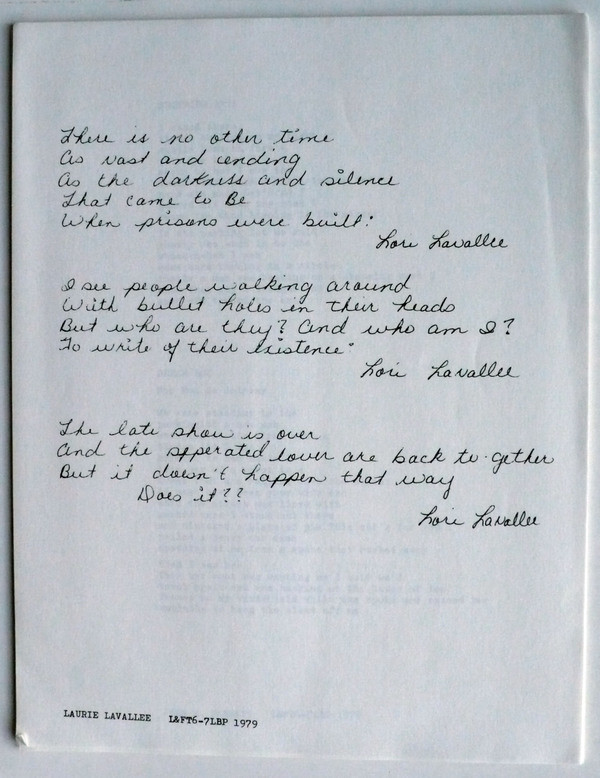 There is no other time
As vast and ending
As the darkness and silence
That came to Be
When prisons were built:
Lori Lavallee
I see people walking around
With bullet holes in their heads
But who are they? And who am I?
To write of their existence.
Lori Lavallee
The late show is over
And the spperated lover are back to-gether
But it doesn't happen that way
Does it??
Lori Lavallee
LAURIE LAVALLEE L&FT6-7LBP 1979